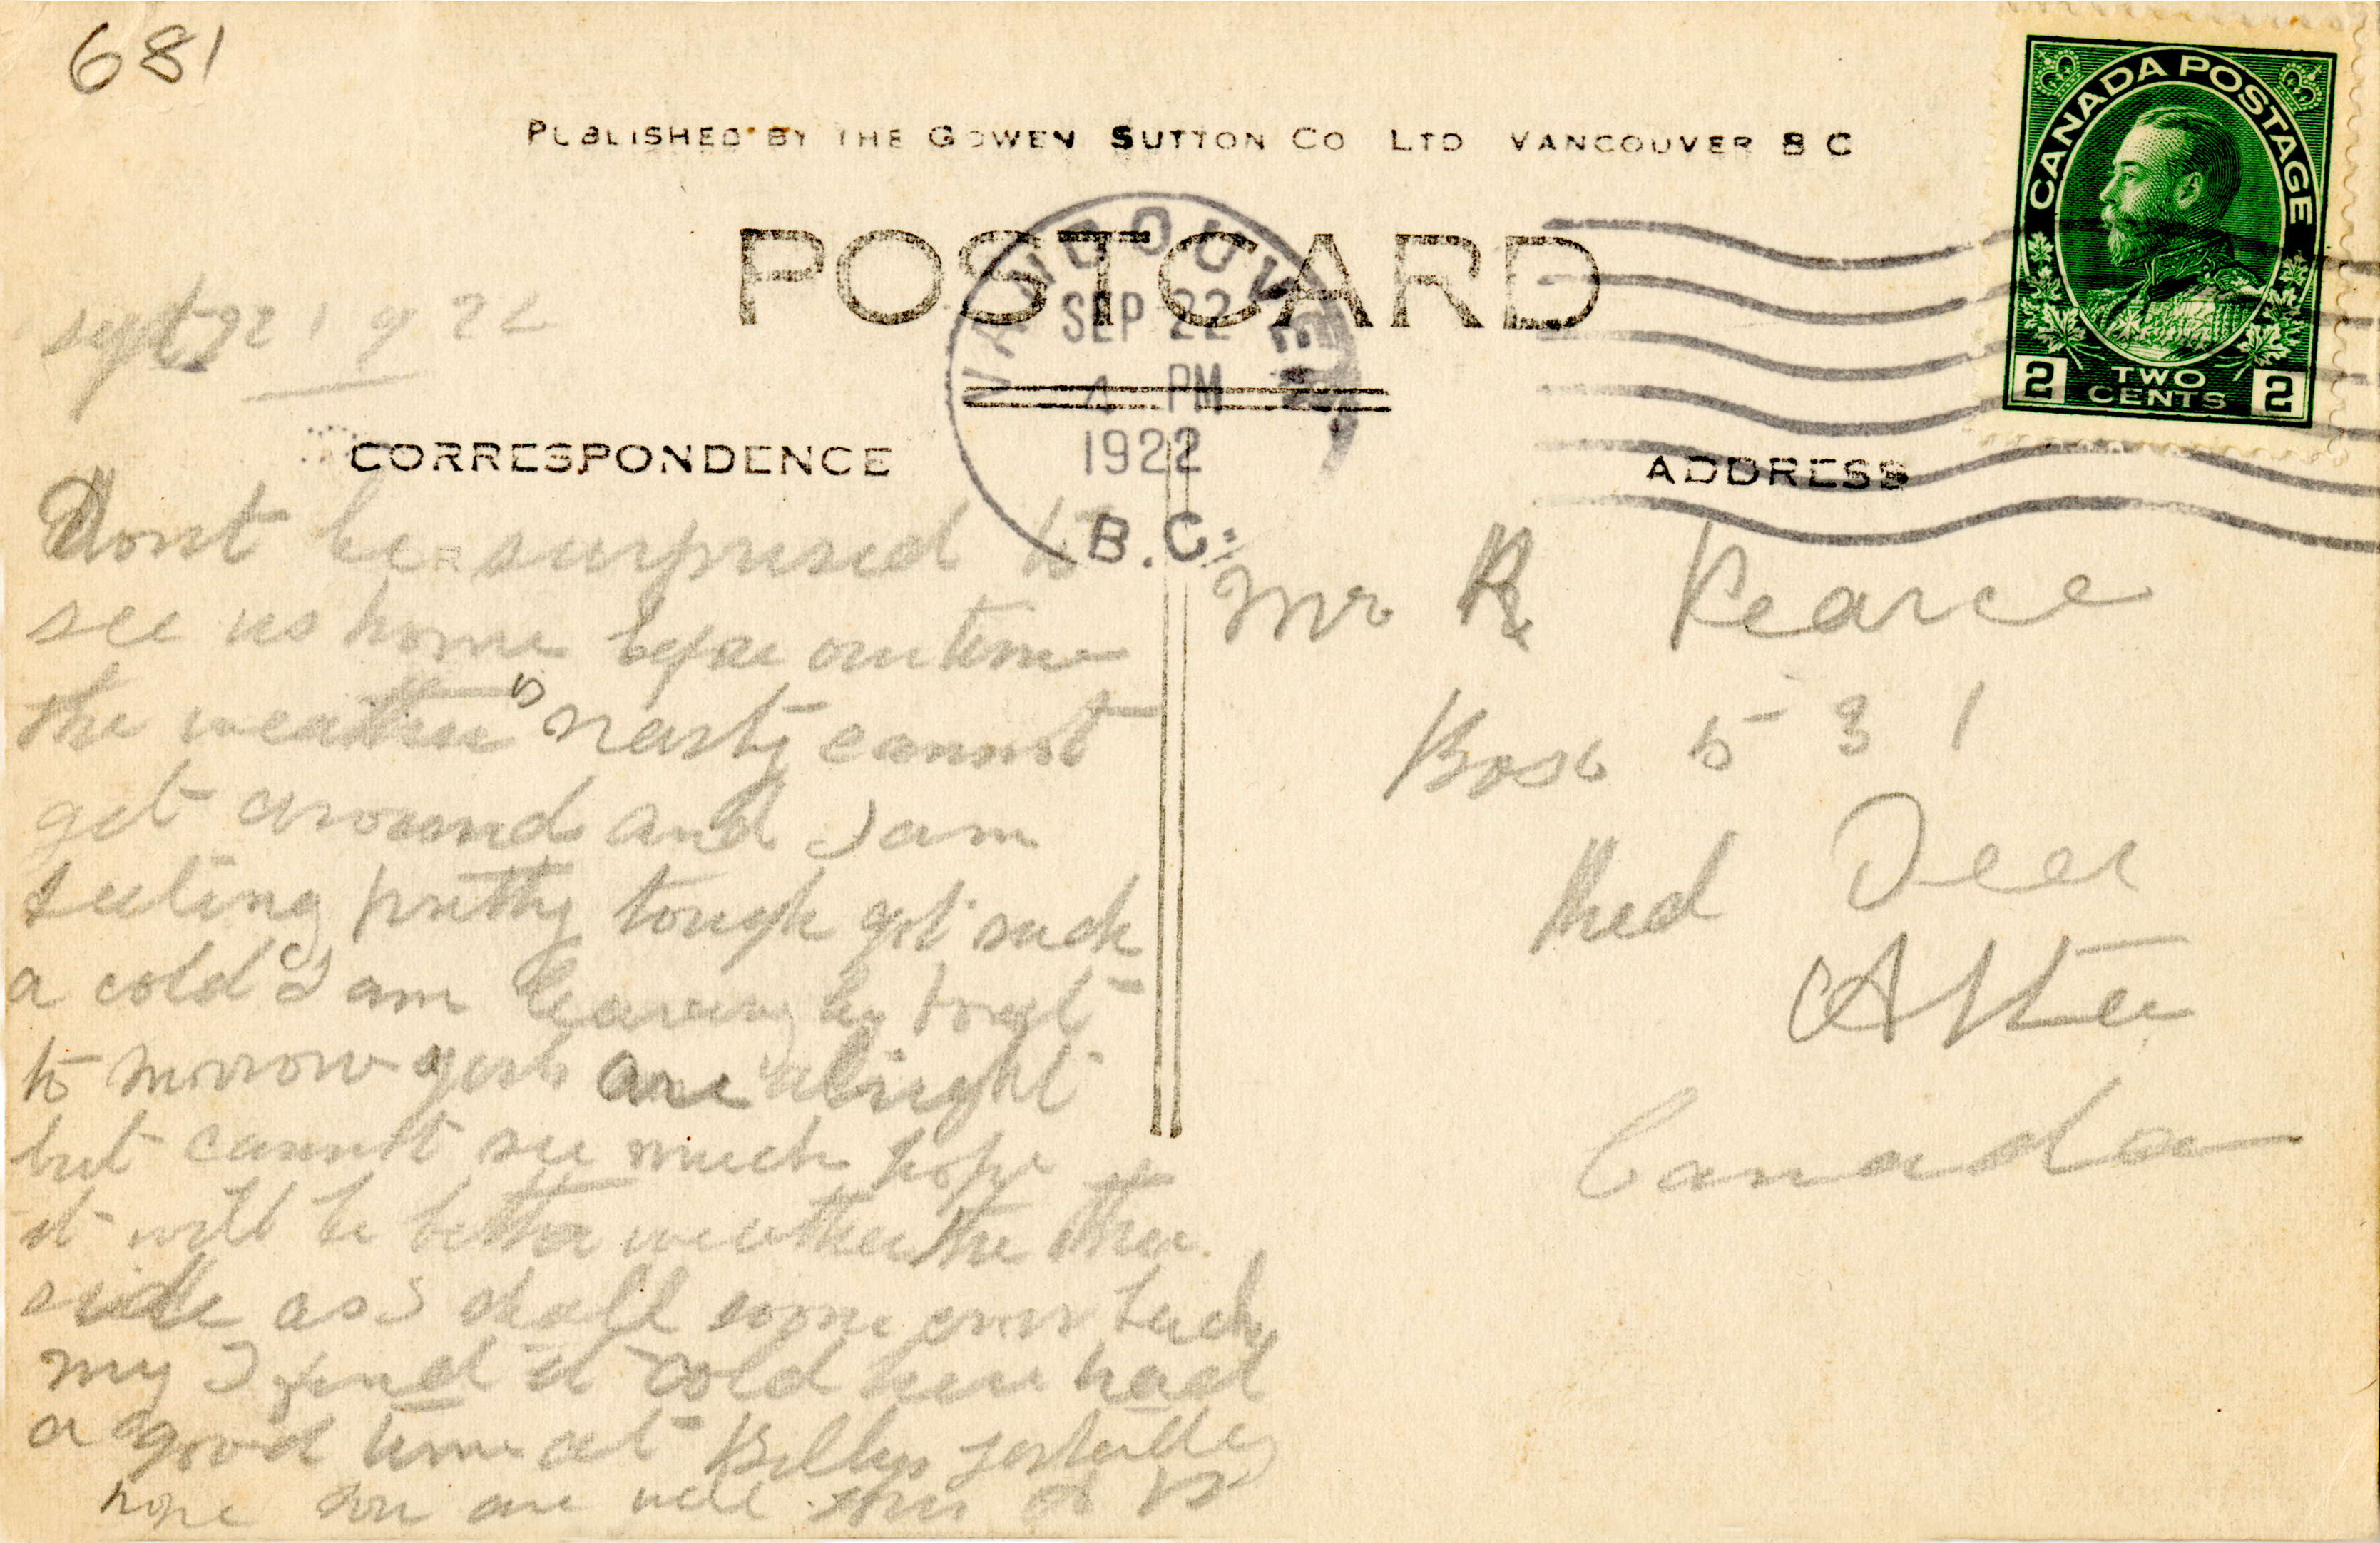 681
PUBLISHED BY THE GOWEN SUTTON CO LTD VANCOUVER B C
POSTCARD
CANADA POSTAGE
2 TWO CENTS 2
VANCOUVER
SEP 22
4 PM
1922
B.C.
Sept 22 1922
CORRESPONDENCE
ADDRESS
Dont be surprised to
see us home before our time
the weather is nasty cannot
get around and I am
feeling pretty tough got such
a cold I am leaving by boat
to morrow yes are alright
but cannot see much hope
it will be better weather the other
side as I shall come over
my I find it cold here had
a good time at Billys yesterday
hope you are well
Mr R Pearce
Box 531
Red Deer
Alta
Canada